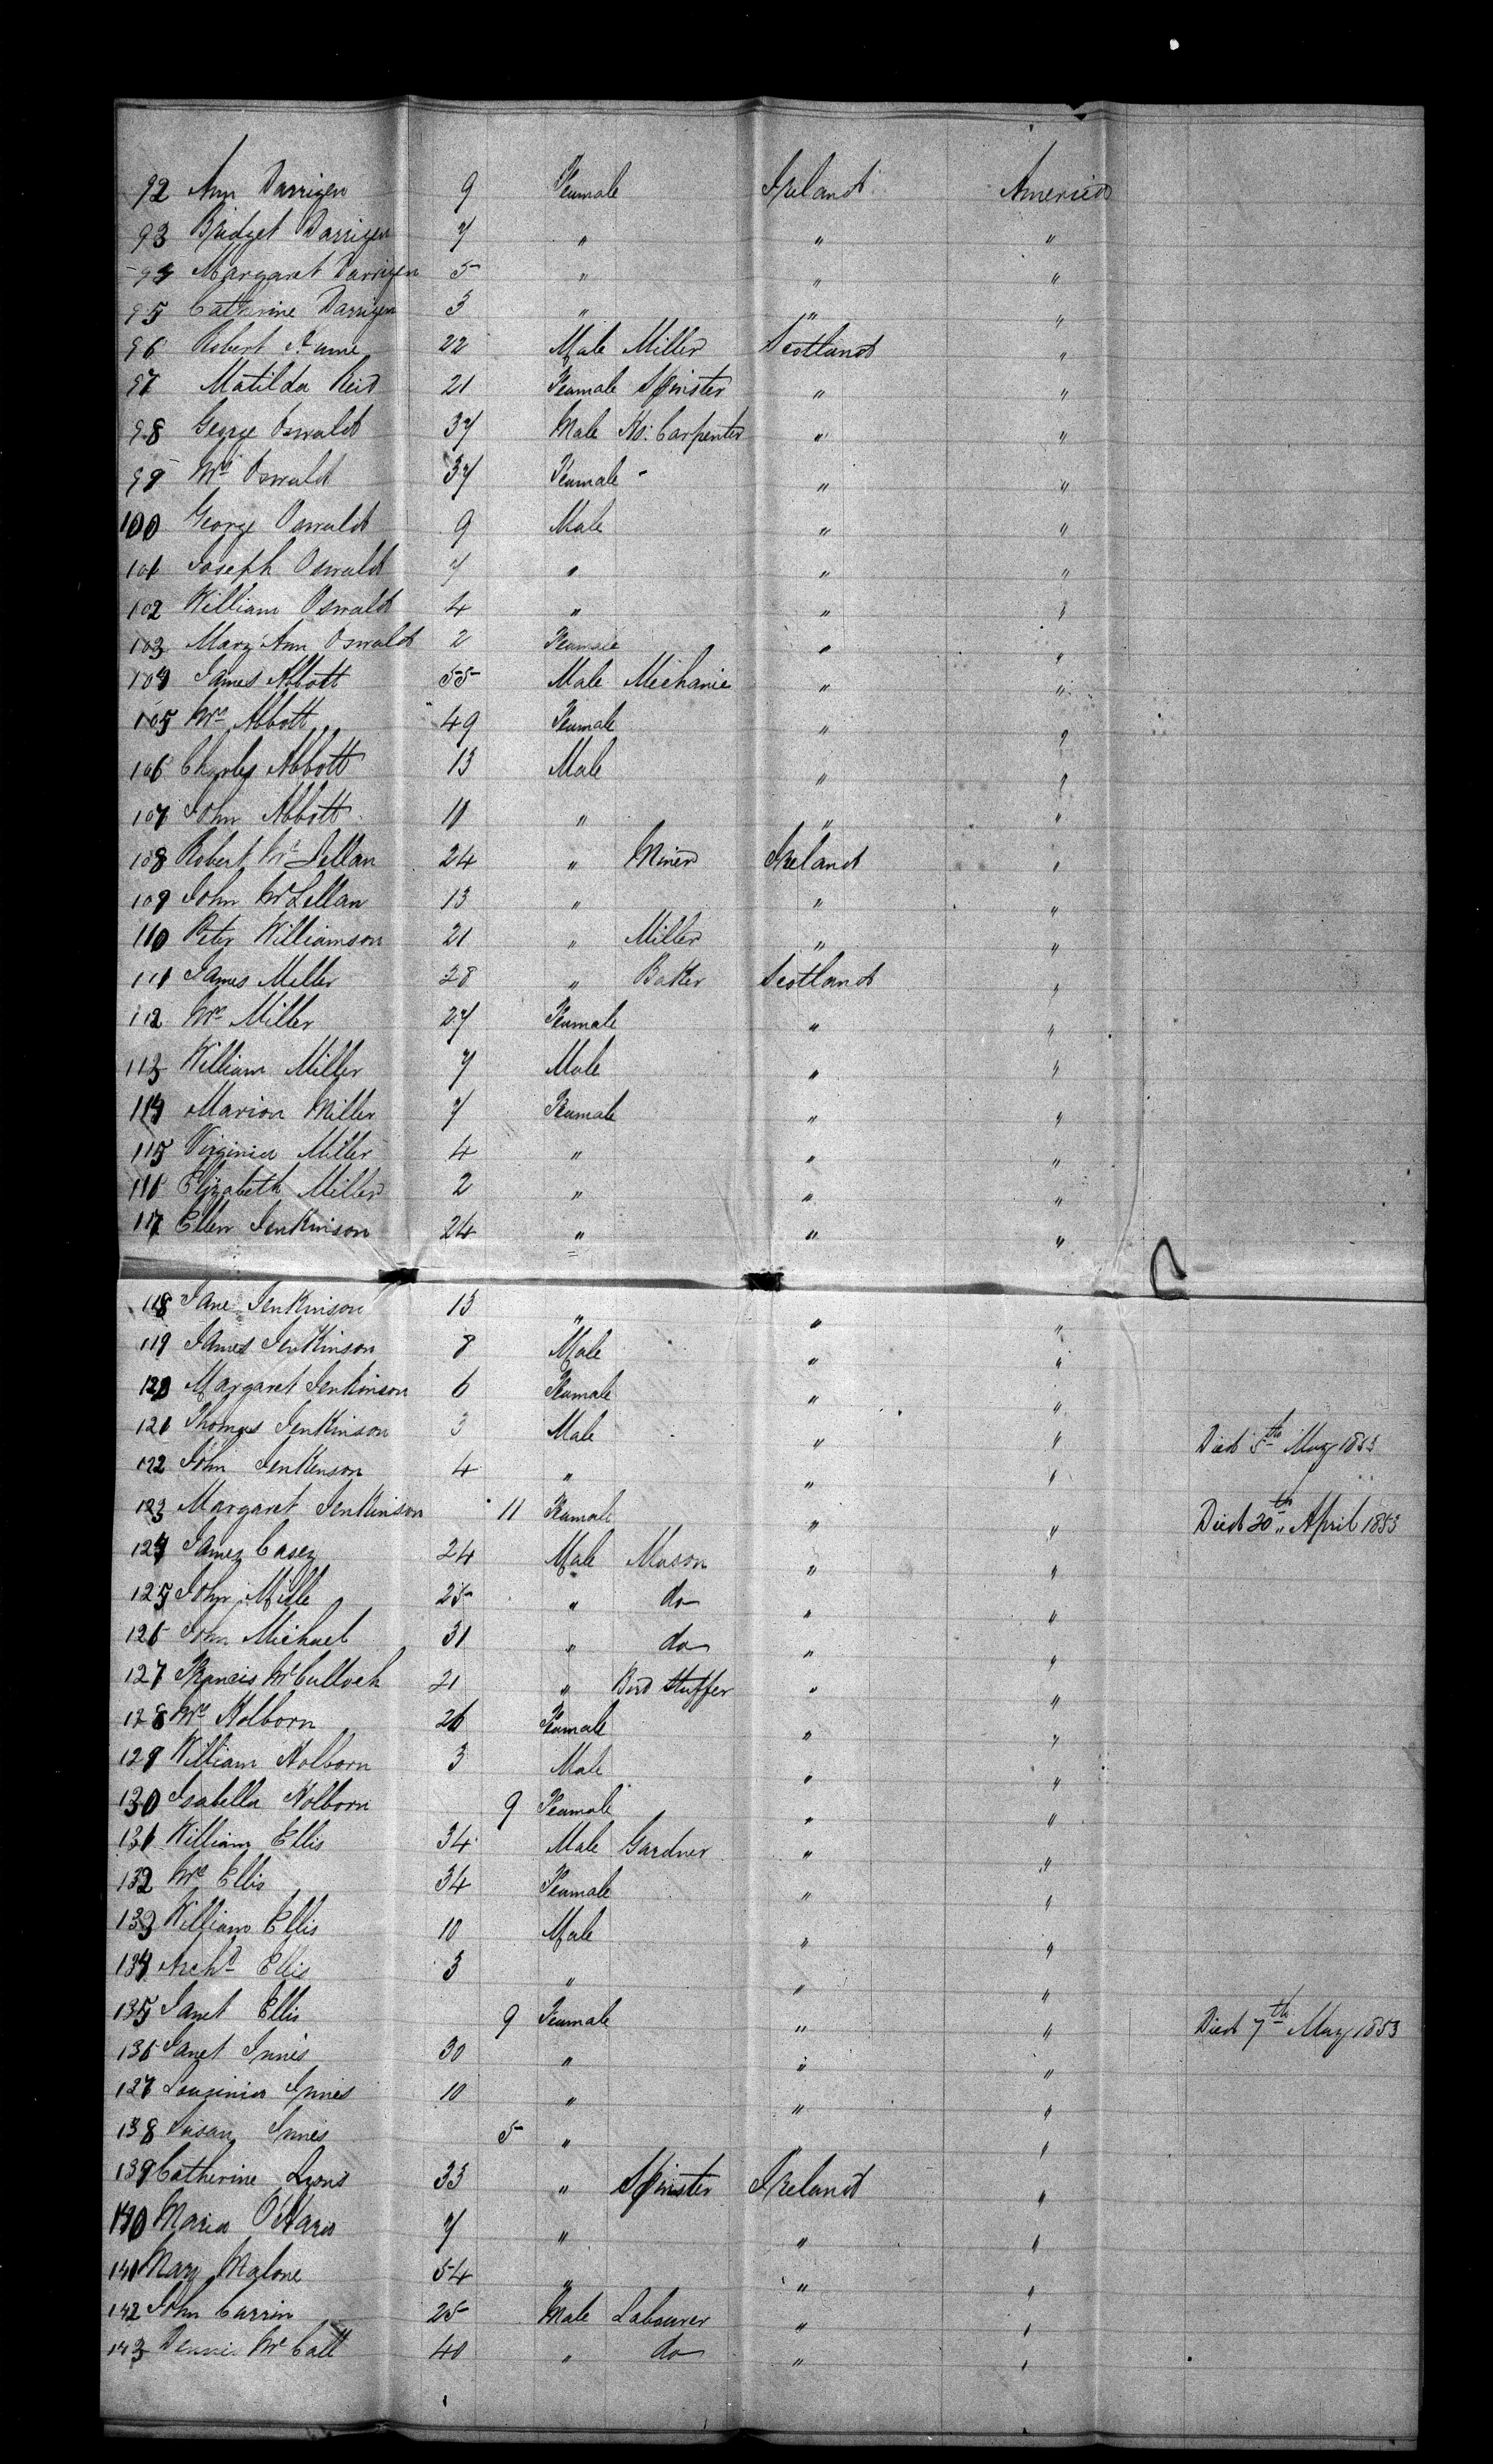 92 Ann Darrigen 9 Feamale Ireland America
93 Bridget Darrigen 7 " " "
94 Margaret Darrigen 5 " " "
95 Catherine Darrigen 3 " " "
96 Robert 22 Male Miller Scotland "
97 Matilda Reid 21 Feamale Spinster " "
98 George Oswald 37 Male Hs. Carpenter " "
99 Mrs Oswald 37 Feamale - " "
100 George Oswald 9 Male " "
101 Joseph Oswald 7 " " "
102 William Oswald 4 " " "
103 Mary Ann Oswald 2 Feamale " "
104 James Abbott 55 Male Mechanic " "
105 Mrs Abbott 49 Feamale " "
106 Charles Abbott 13 Male " "
107 John Abbott 11 " " "
108 Robert McLellan 24 " Miner Ireland "
109 John McLellan 13 " " "
110 Peter Williamson 21 " Miller " "
111 James Miller 28 " Baker Scotland "
112 Mrs Miller 27 Feamale " "
113 William Miller 7 Male " "
114 Marion Miller 7 Feamale " "
115 Virginia Miller 4 " " "
116 Elizabeth Miller 2 " " "
117 Ellen Jenkinson 24 " " "
118 Jane Jenkinson 13 " " "
119 James Jenkinson 8 Male " "
120 Margaret Jenkinson 6 Feamale " "
121 Thomas Jenkinson 3 Male " " Died 5th May 1853
122 John Jenkinson 4 " " "
123 Margaret Jenkinson 11 Feamale " " Died 20th April 1853
124 James Casey 24 Male Mason " "
125 John Mille 25 " do " "
126 John Michael 31 " do " "
127 Francis McCulloch 21 " Bird Stuffer " "
128 Mrs Holborn 26 Feamale " "
129 William Holborn 3 Male " "
130 Isabella Holborn 9 Feamale " "
131 William Ellis 34 Male Gardner " "
132 Mrs Ellis 34 Feamale " "
133 William Ellis 10 Male " "
134 Archd Ellis 3 " " "
135 Janet Ellis 9 Feamale " " Died 7th May 1853
136 Janet Innes 30 " " "
137 Innes 10 " " "
138 Susan Innes 5 " " "
139 Catherine Lyons 33 " Spinster Ireland "
140 Maria O'Hara 7 " " "
141 Mary Malone 54 " " "
142 John Carrin 25 Male Labourer " "
143 Dennis McCall 40 " do " "